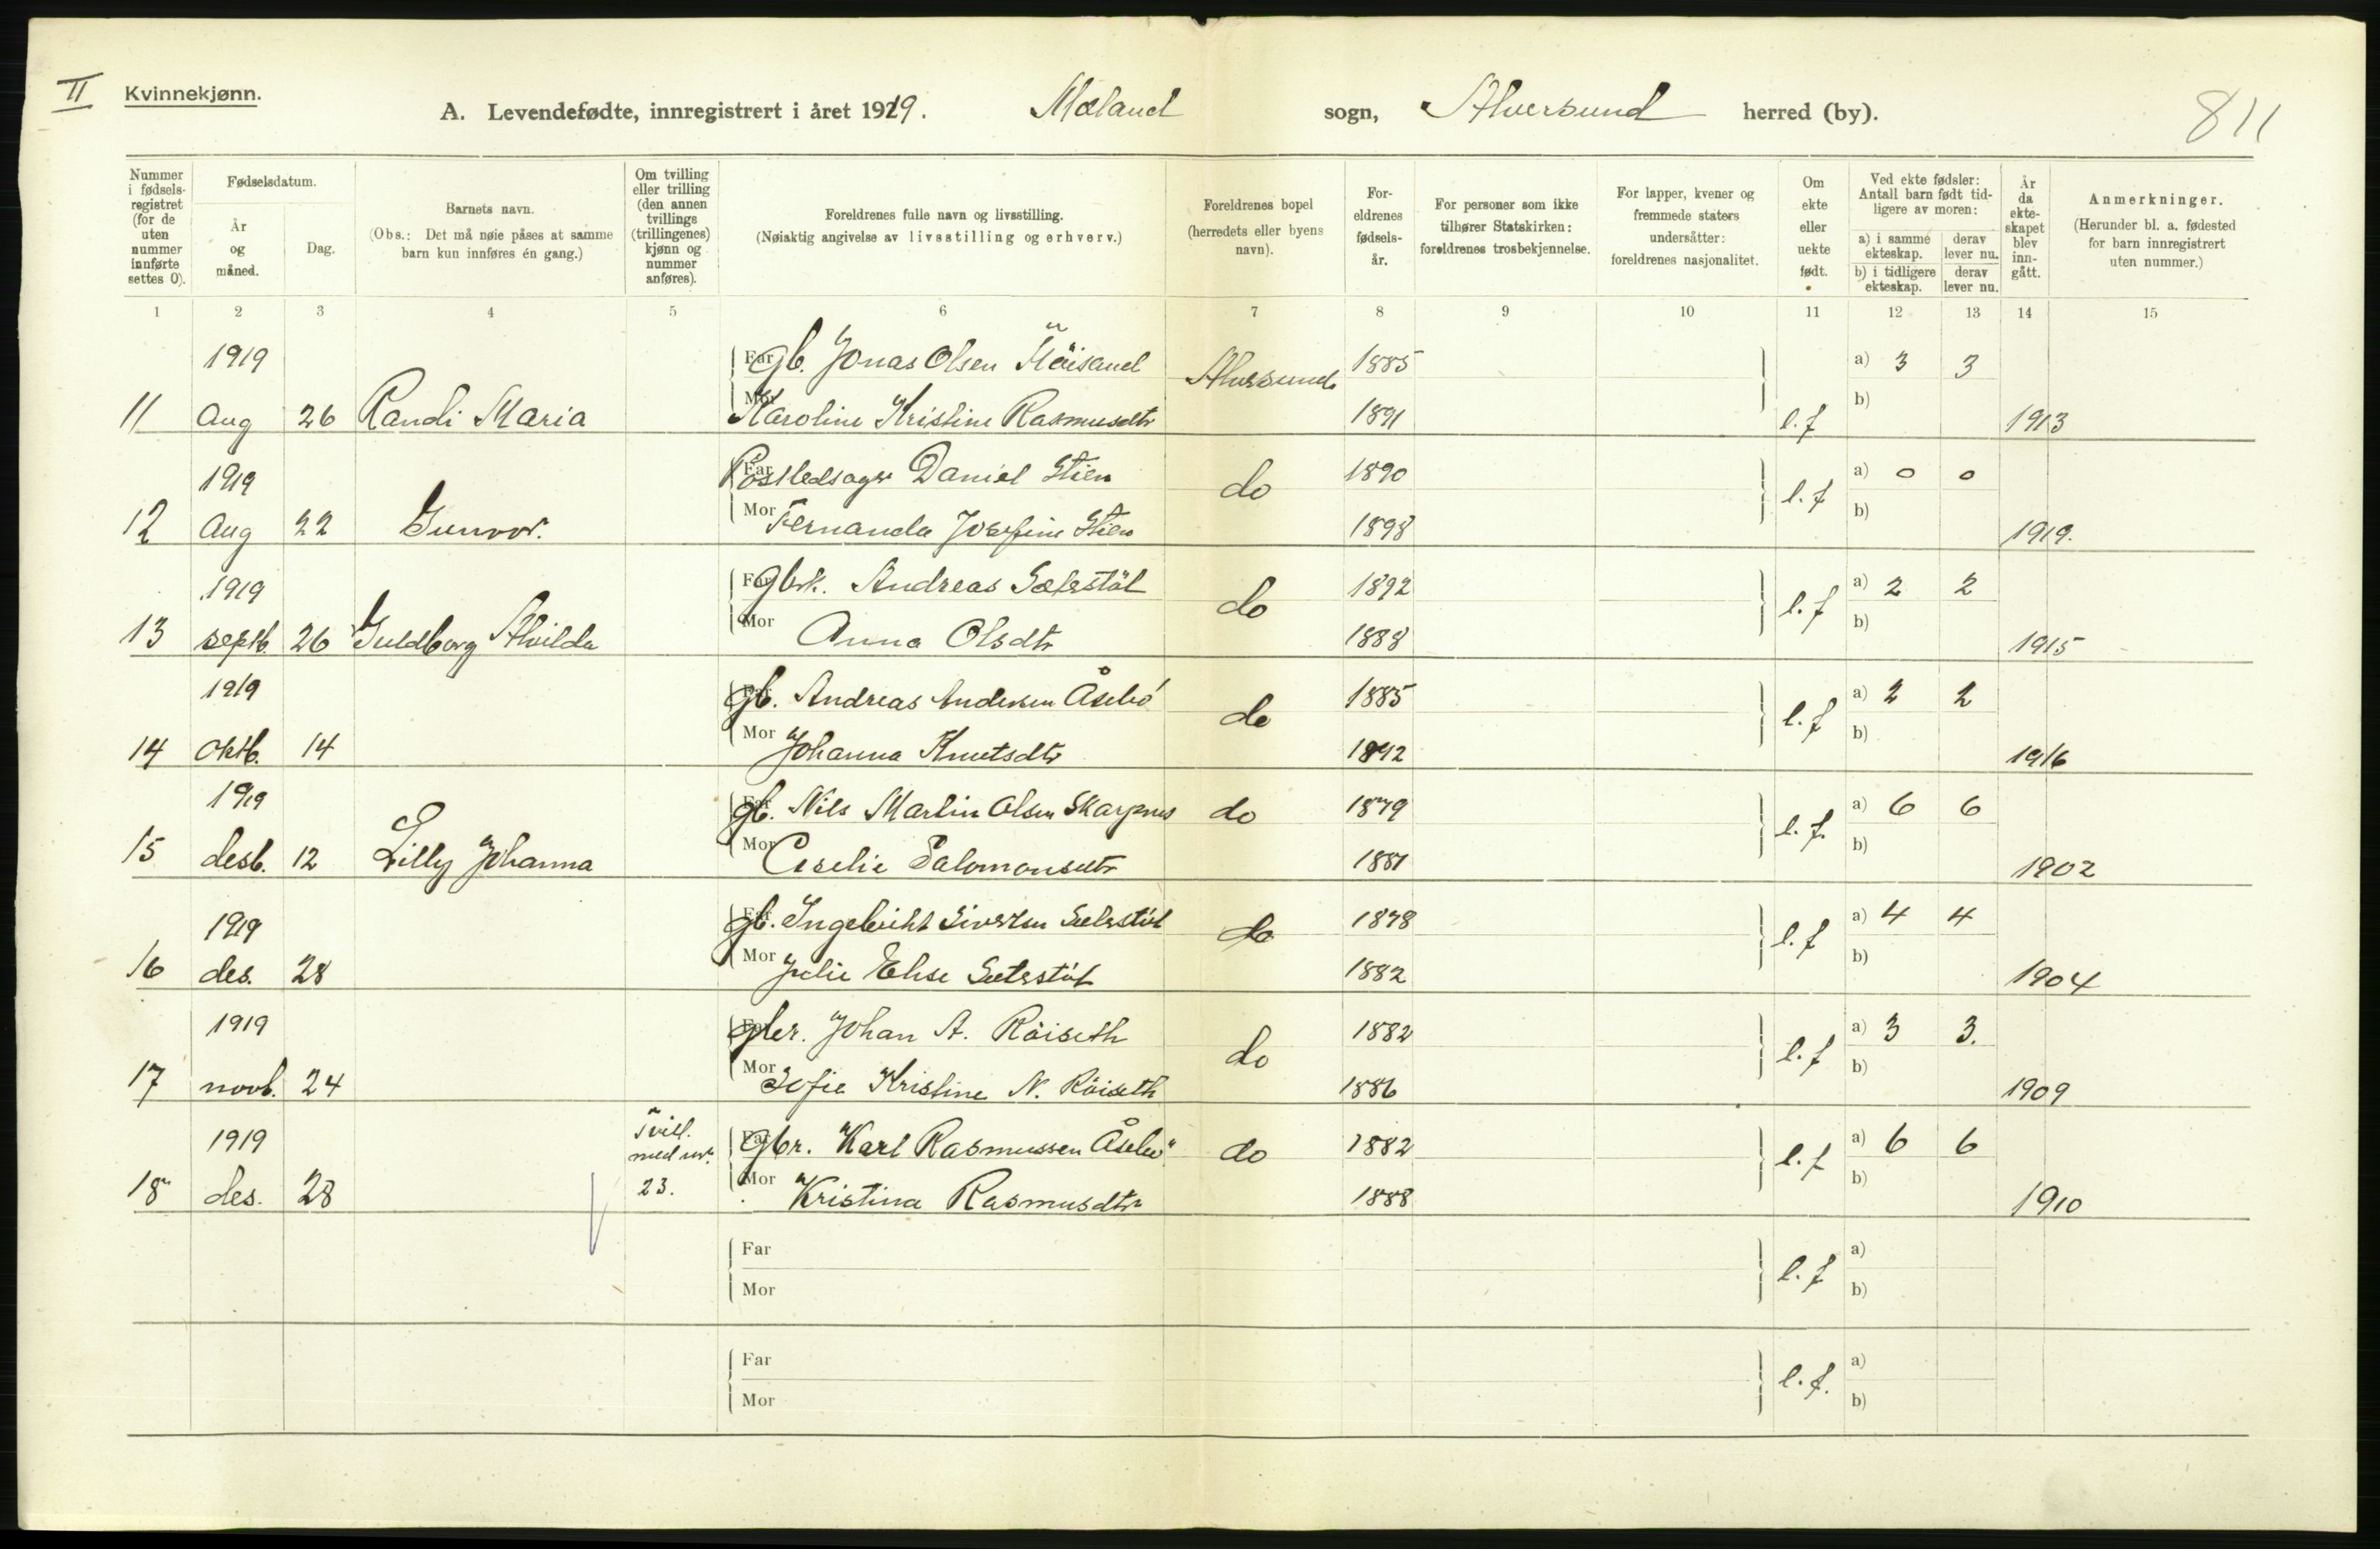 II Kvinnekjønn.
A. Levendefødte, innregistrert i året 1919. Mæland sogn, Alversund herred (by).
811
Nummer i fødselsregistret (for de uten nummer innførte settes 0).
Fødselsdatum.
År og måned.
Dag.
Barnets navn.
(Obs.: Det må nøie påses at samme barn kun innføres én gang.)
Om tvilling eller trilling (den annen tvillings (trillingenes) kjønn og nummer anføres).
Foreldrenes fulle navn og livsstilling.
(Nøiaktig angivelse av livsstilling og erhverv.)
Foreldrenes bopel (herredets eller byens navn).
Foreldrenes fødselsår.
For personer som ikke tilhører Statskirken: foreldrenes trosbekjennelse.
For lapper, kvener og fremmede staters undersåtter: foreldrenes nasjonalitet.
Om ekte eller uekte født.
Ved ekte fødsler: Antall barn født tidligere av moren:
a) i samme ekteskap. derav lever nu.
b) i tidligere ekteskap. derav lever nu.
År da ekteskapet blev inngått.
Anmerkninger.
(Herunder bl. a. fødested for barn innregistrert uten nummer.)
1 2 3 4 5 6 7 8 9 10 11 12 13 14 15
1919 Far gb. Jonas Olsen Alversund 1885 a) 3 3
11 Aug 26 Randi Maria Mor Karoline Kristine Rasmusdtr 1891 l.f b) 1913
1919 Far Postledsager Daniel Stien do 1890 l.f a) 0 0
12 Aug 22 Gunvor. Mor Fernanda Josefine Stien 1898 b) 1919.
1919 Far gbrk. Andreas Sætrstöl do 1892 l.f a) 2 2
13 septb. 26 Guldborg Alvilda Mor Anna Olsdtr 1888 b) 1915
1919 Far gb. Andreas Andersen Åsebö do 1885 l.f a) 2 2
14 oktb. 14 Mor Johanna Knutsdtr 1892 b) 1916
1919 Far gb. Nils Martin Olsen Skarpnes do 1879 l.f. a) 6 6
15 desb. 12 Lilly Johanna Mor Ceselie Salomonsdtr 1881 b) 1902
1919 Far gb. Ingebricht Siversen Sætrstöl do 1878 l.f a) 4 4
16 des. 28 Mor Julie Elise Sætrstöl 1882 b) 1904
1919 Far gbr. Johan A. Röiseth do 1882 l.f a) 3 3.
17 novb. 24 Mor Sofie Kristine N. Röiseth 1886 b) 1909
1919 Tvill. med nr. Far Gbr. Karl Rasmussen Åsebö do 1882 l.f a) 6 6
18 des. 28 23. Mor Kristina Rasmusdtr 1888 b) 1910
Far l.f a)
Mor b)
Far l.f. a)
Mor b)